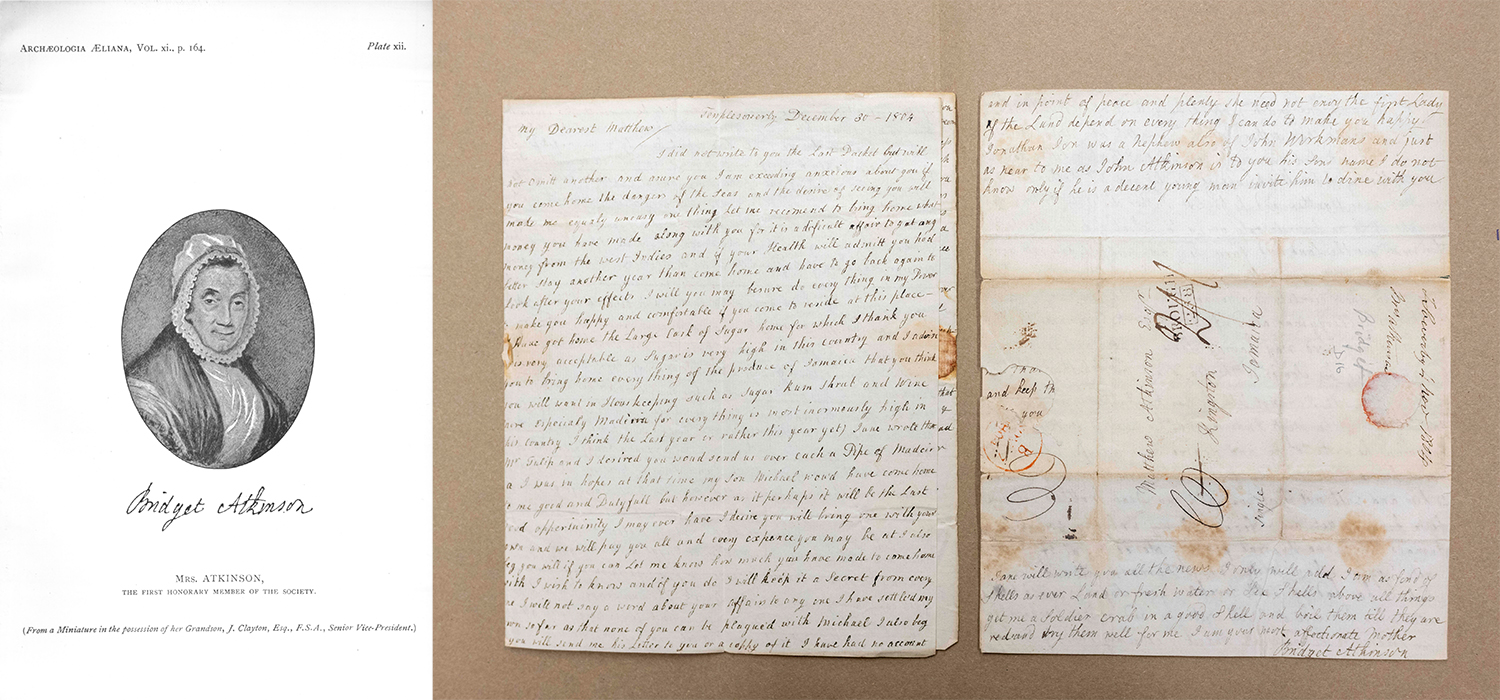 ARCHÆOLOGIA ÆLIANA, VOL. xi., p. 164.
Plate xii.
Bridget Atkinson
MRS. ATKINSON,
THE FIRST HONORARY MEMBER OF THE SOCIETY.
(From a Miniature in the possession of her Grandson, J. Clayton, Esq., F.S.A., Senior Vice-President.)
December 30 - 1804
My Dearest Matthew
I did not write to you the Last Packet but will
not omitt another and asure you I am exceeding anxecious about you if
you come home the danger of the Seas and the desire of seeing you will
made me equaly uneasy one thing Let me recomend to bring home what
money you have made along with you for it is a deficult affair to get any
money from the west Indies and if your Health will admitt you had
better stay another year than come home and have to go back again to
Look after your effects I will you may besure do every thing in my Power
make you happy and comfortable if you come to reside at this place
Have got home the Large Cask of Sugar home for which I thank you
is very acceptable as Sugar is very high in this country and I desire
you to bring home every thing of the produce of Jamaica that you think
you will want in Housekeeping such as Sugar Rum and Wine
Especialy Madiera for everything is most inormously high in
this Country I think the Last year or rather this year yet Jane wrote
Mr and I desired you woud send us over each a Pipe of Madeira
I was in hopes at that time my Son Michael woud have come home
to me good and Dutyfull but however as it perhaps it will be the Last
good oppertuinity I may ever have I desire you will bring one with your
own and we will pay you all and every expence you may be at I also
beg you will if you can Let me know how much you have made to come home
with I wish to know and if you do I will keep it a Secret from every
one I will not say a word about your affair to any one I have settled my
own so far as that none of you can be plagued with Michael I also beg
you will send me his Letter to you or a Cophy of it I have had no account
and in point of peace and plenty she need not envy the first Lady
of the Land depend on every thing I can do to make you happy
Jonathan Ion was a Nephew also of John Workmans and just
as near to me as John Atkinson is to you his Sons name I do not
know only if he is a decent young man invite him to dine with you
and keep th
you
Matthew Atkinson Esqr
Kingston
Jamaica
single
Bridget
Jane will write you all the news I only will add I am as fond of
Shells as ever Land or fresh water or Sea Shells above all things
get me a Soldier Crab in a good Shell and boil them till they are
red and dry them well for me I am your most affectionate Mother
Bridget Atkinson